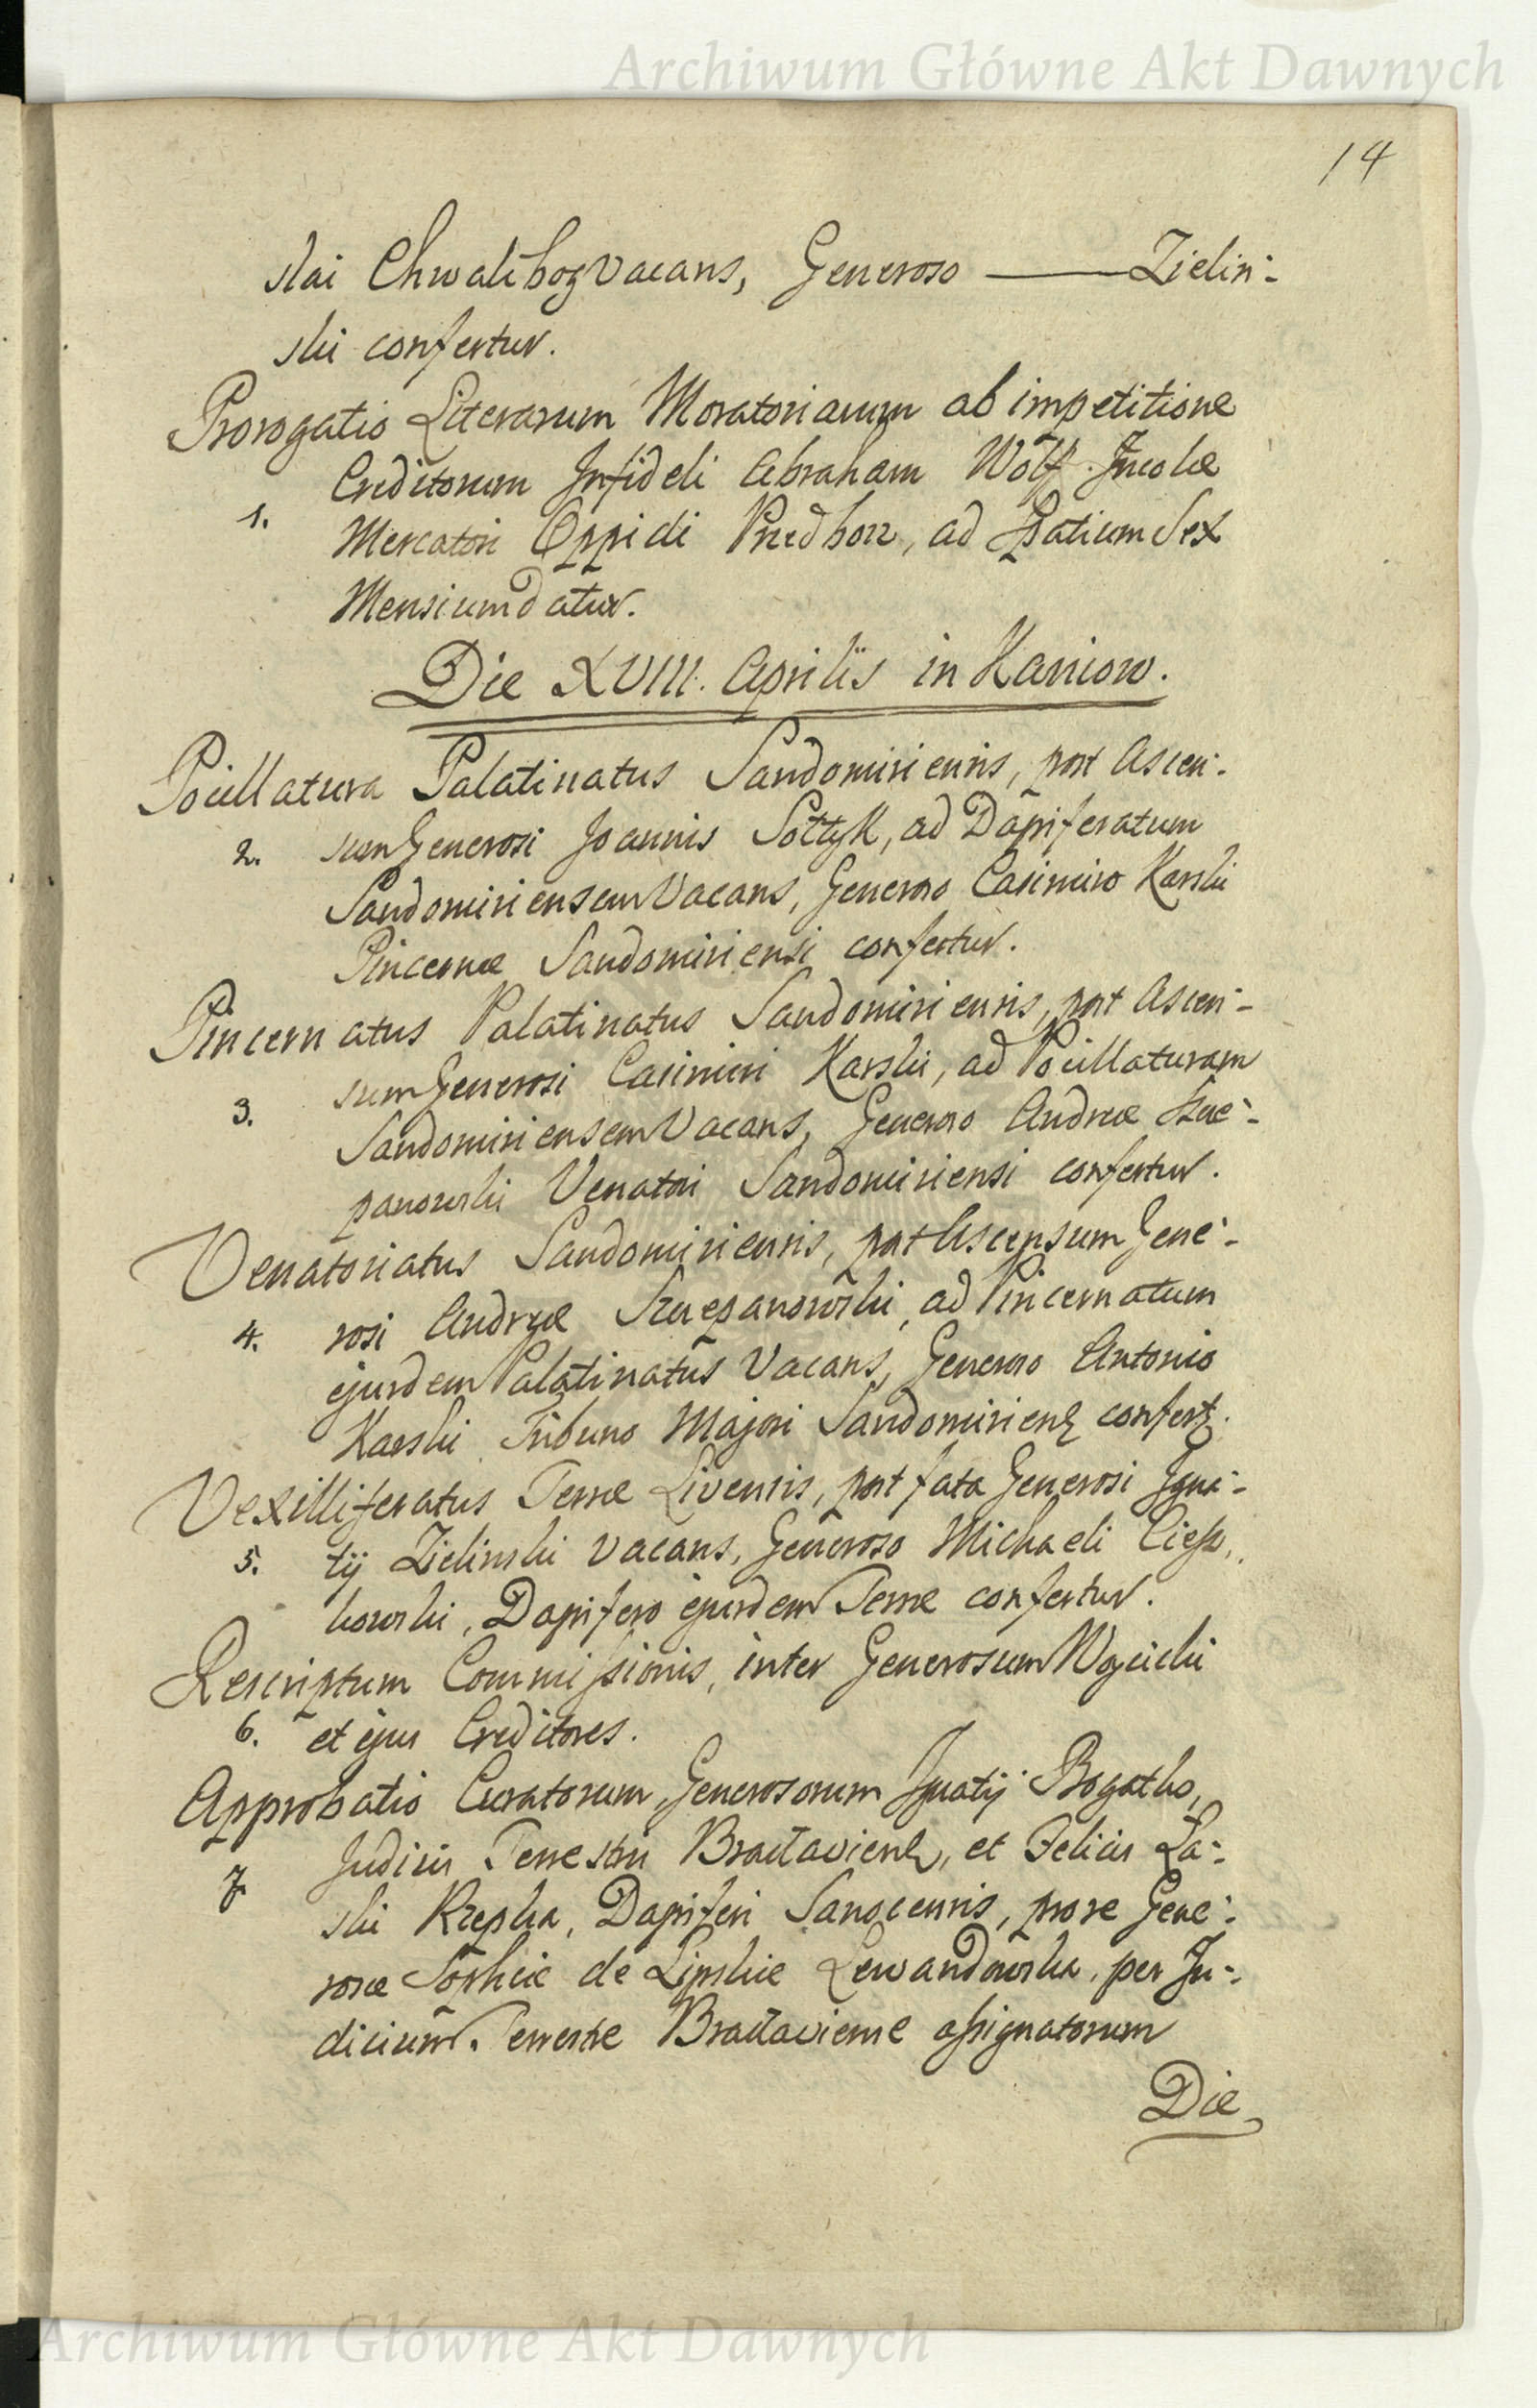 Archiwum Główne Akt Dawnych
14
slai Chwalibog vacans, Generoso ——— Zielin-
ski confertur.
Prorogatio Literarum Moratoriarum ab impetitione
Creditorum Infideli Abraham Wolf Incolæ
1.
Mercatori Oppidi Przedborz, ad Spatium Sex
Mensium datur.
Die XVIII. Aprilis in Kaniow.
Pocillatura Palatinatus Sandomiriensis, post Ascen-
2. sum Generosi Joannis Sołtyk, ad Dapiferatum
Sandomiriensem Vacans, Generoso Casimiro Karski
Pincernæ Sandomiriensi confertur.
Pincernatus Palatinatus Sandomiriensis, post Ascen-
3. sum Generosi Casimiri Karski, ad Pocillaturam
Sandomiriensem Vacans, Generoso Andreæ Szcze-
panowski Venatori Sandomiriensi confertur.
Venatoriatus Sandomiriensis, post Ascensum Gene-
4. rosi Andreæ Szczepanowski, ad Pincernatum
ejusdem Palatinatus Vacans, Generoso Antonio
Karski Tribuno Majori Sandomiriens confert.
Vexilliferatus Terræ Livensis, post fata Generosi Igna-
5. tij Zielinski vacans, Generoso Michaeli Ciesz-
kowski, Dapifero ejusdem Terræ confertur.
Rescriptum Commissionis, inter Generosum Woycicki
6. et ejus Creditores.
Approbatio Curatorum, Generosorum Ignatij Bogatko,
7 Judicis Terrestri Bracłaviens, et Felicis La-
ski Rzepka, Dapiferi Sanocensis, pro se Gene-
rosæ Sophiæ de Lipskie Lewandowska, per Ju-
dicium Terrestre Bracłaviense assignatorum
Die
Archiwum Główne Akt Dawnych